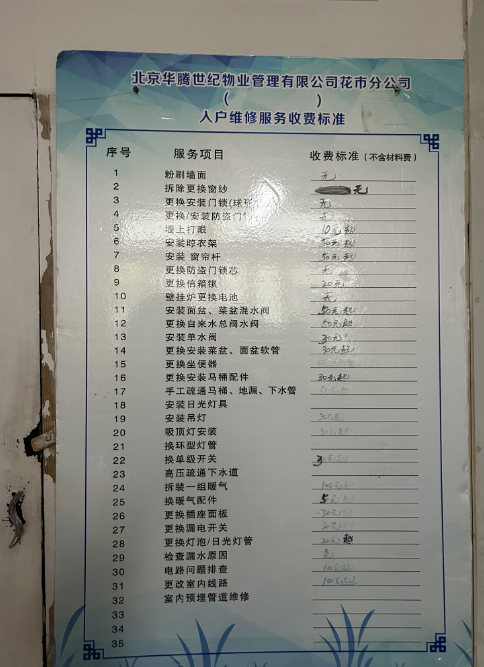 北京华腾世纪物业管理有限公司花市分公司
( )
入户维修服务收费标准
序号 服务项目 收费标准（不含材料费）
1 粉刷墙面 无
2 拆除更换窗纱 无
3 更换安装门锁(球形 无
4 更换/安装防盗门 无
5 墙上打眼 10元起
6 安装晾衣架 50元起
7 安装 窗帘杆 50元起
8 更换防盗门锁芯 无
9 更换信箱锁 20元
10 壁挂炉更换电池 无
11 安装面盆、菜盆混水阀 50元起
12 更换自来水总阀水阀 50元起
13 安装单水阀 30元
14 更换安装菜盆、面盆软管 30元起
15 更换坐便器
16 更换安装马桶配件 30元起
17 手工疏通马桶、地漏、下水管
18 安装日光灯具
19 安装吊灯
20 吸顶灯安装
21 换环型灯管
22 换单级开关
23 高压疏通下水道
24 拆装一组暖气 100元起
25 换暖气配件
26 更换插座面板 30元起
27 更换漏电开关
28 更换灯泡/日光灯管 20元起
29 检查漏水原因
30 电路问题排查 100元起
31 更改室内线路 100元起
32 室内预埋管道维修
33
34
35